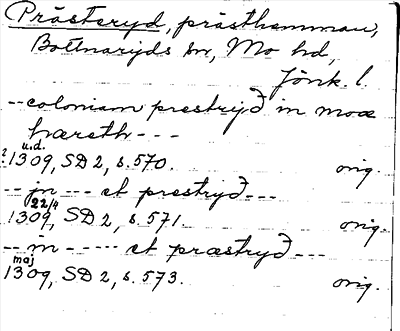 Prästeryd, prästhemman,
Bottnaryds sn, Mo hd,
Jönk. l.
--coloniam prestryð in moæ
hæreth---
? 1309, u.d. SD 2, s. 570. orig.
-- jn --- et prestryð ---
1309, 22/4 SD 2, s. 571. orig.
-- in ----- et præstryð ---
1309, maj SD 2, s. 573. orig.